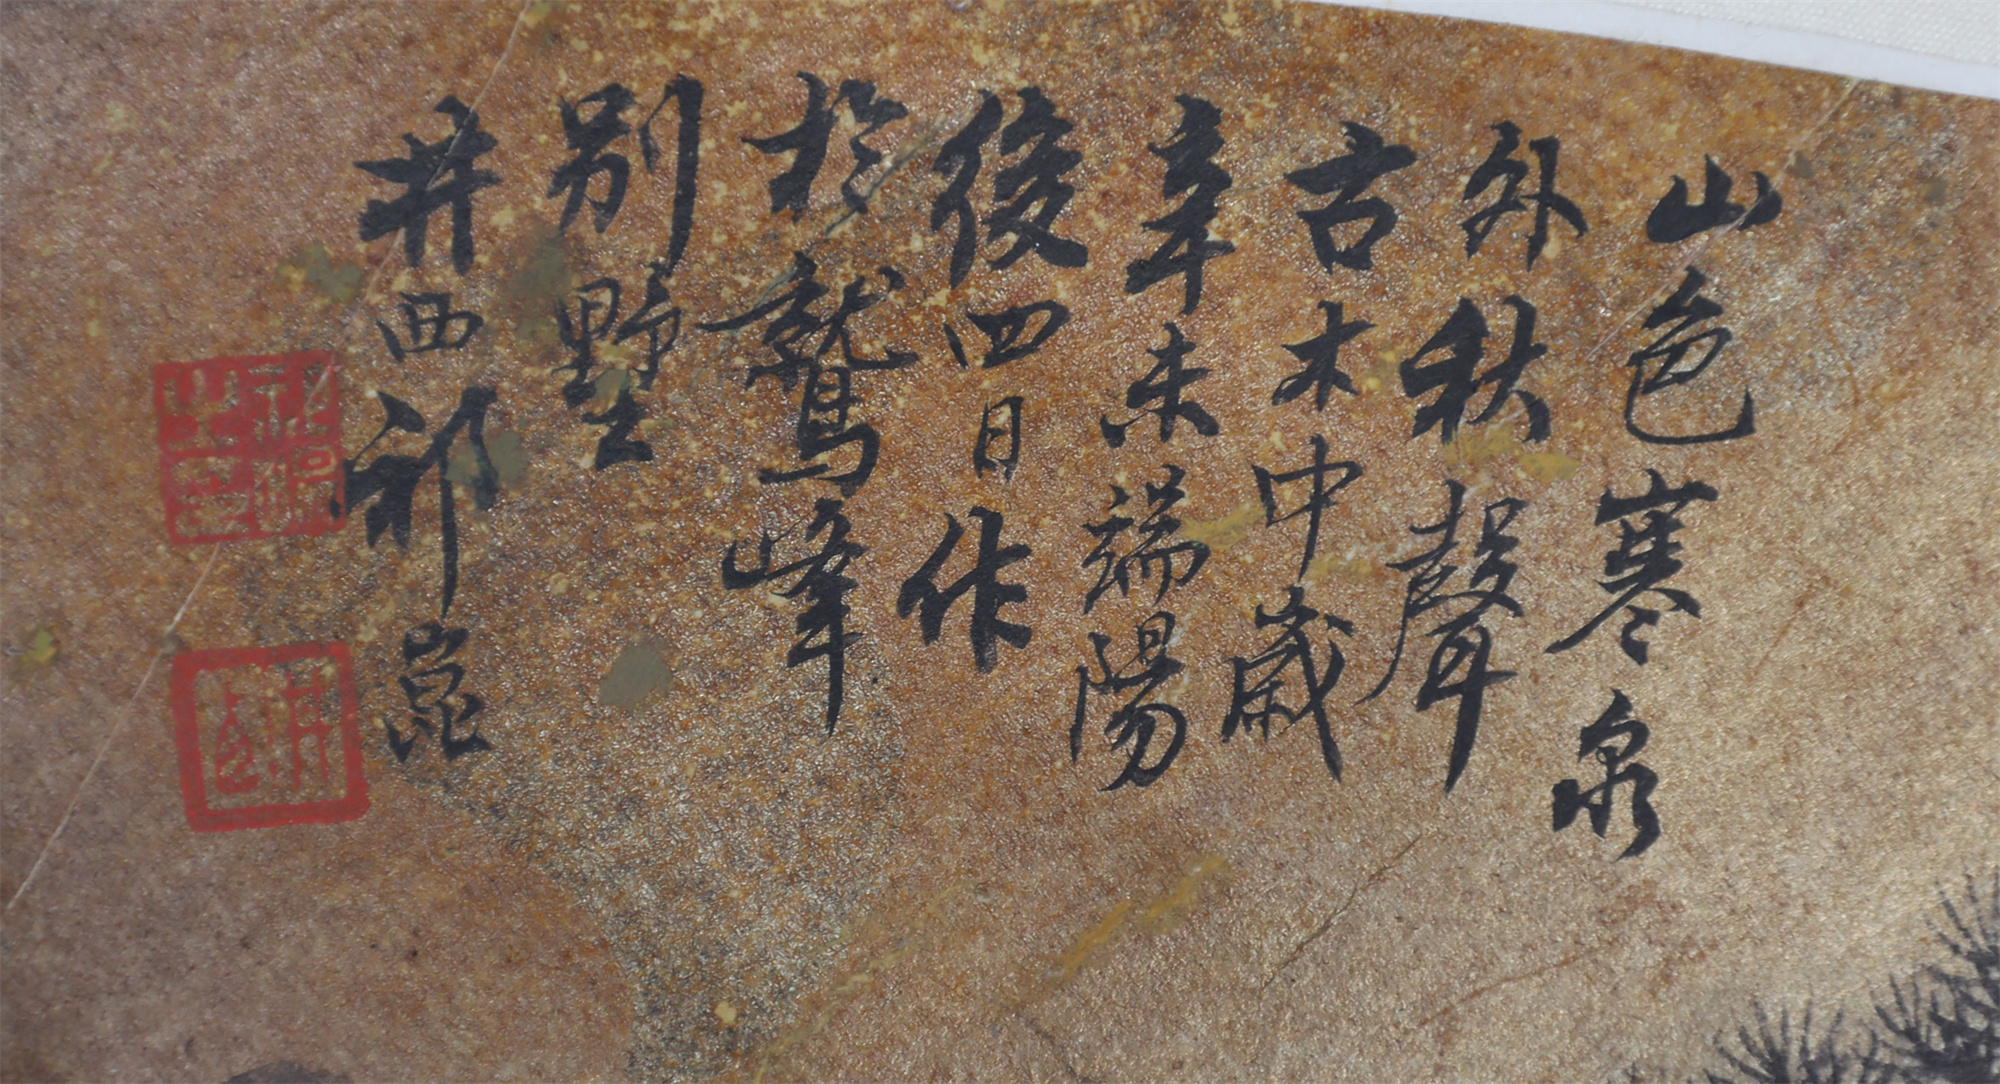 山色寒泉
外秋聲
古木中歲
辛未端陽
後四日作
於鷲峰
別野
井西祁崑
祁崑之